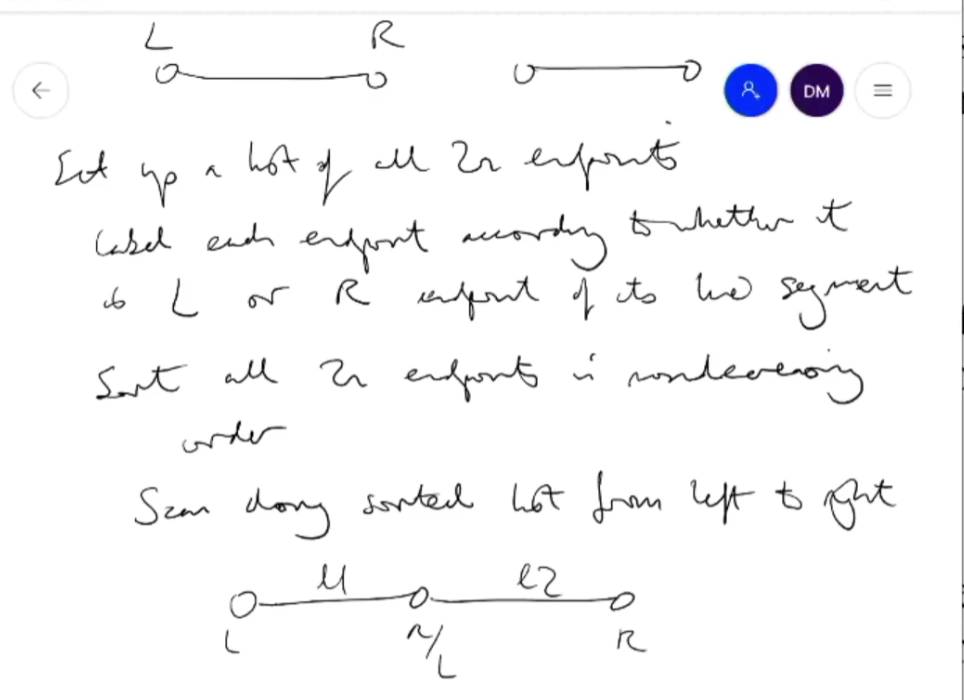 L R
DM
Set up a list of all 2n endpoints
Label each endpoint according to whether it
is L or R endpoint of its line segment
Sort all 2n endpoints in nondecreasing
order
Scan along sorted list from left to right
l1 l2
L R/L R